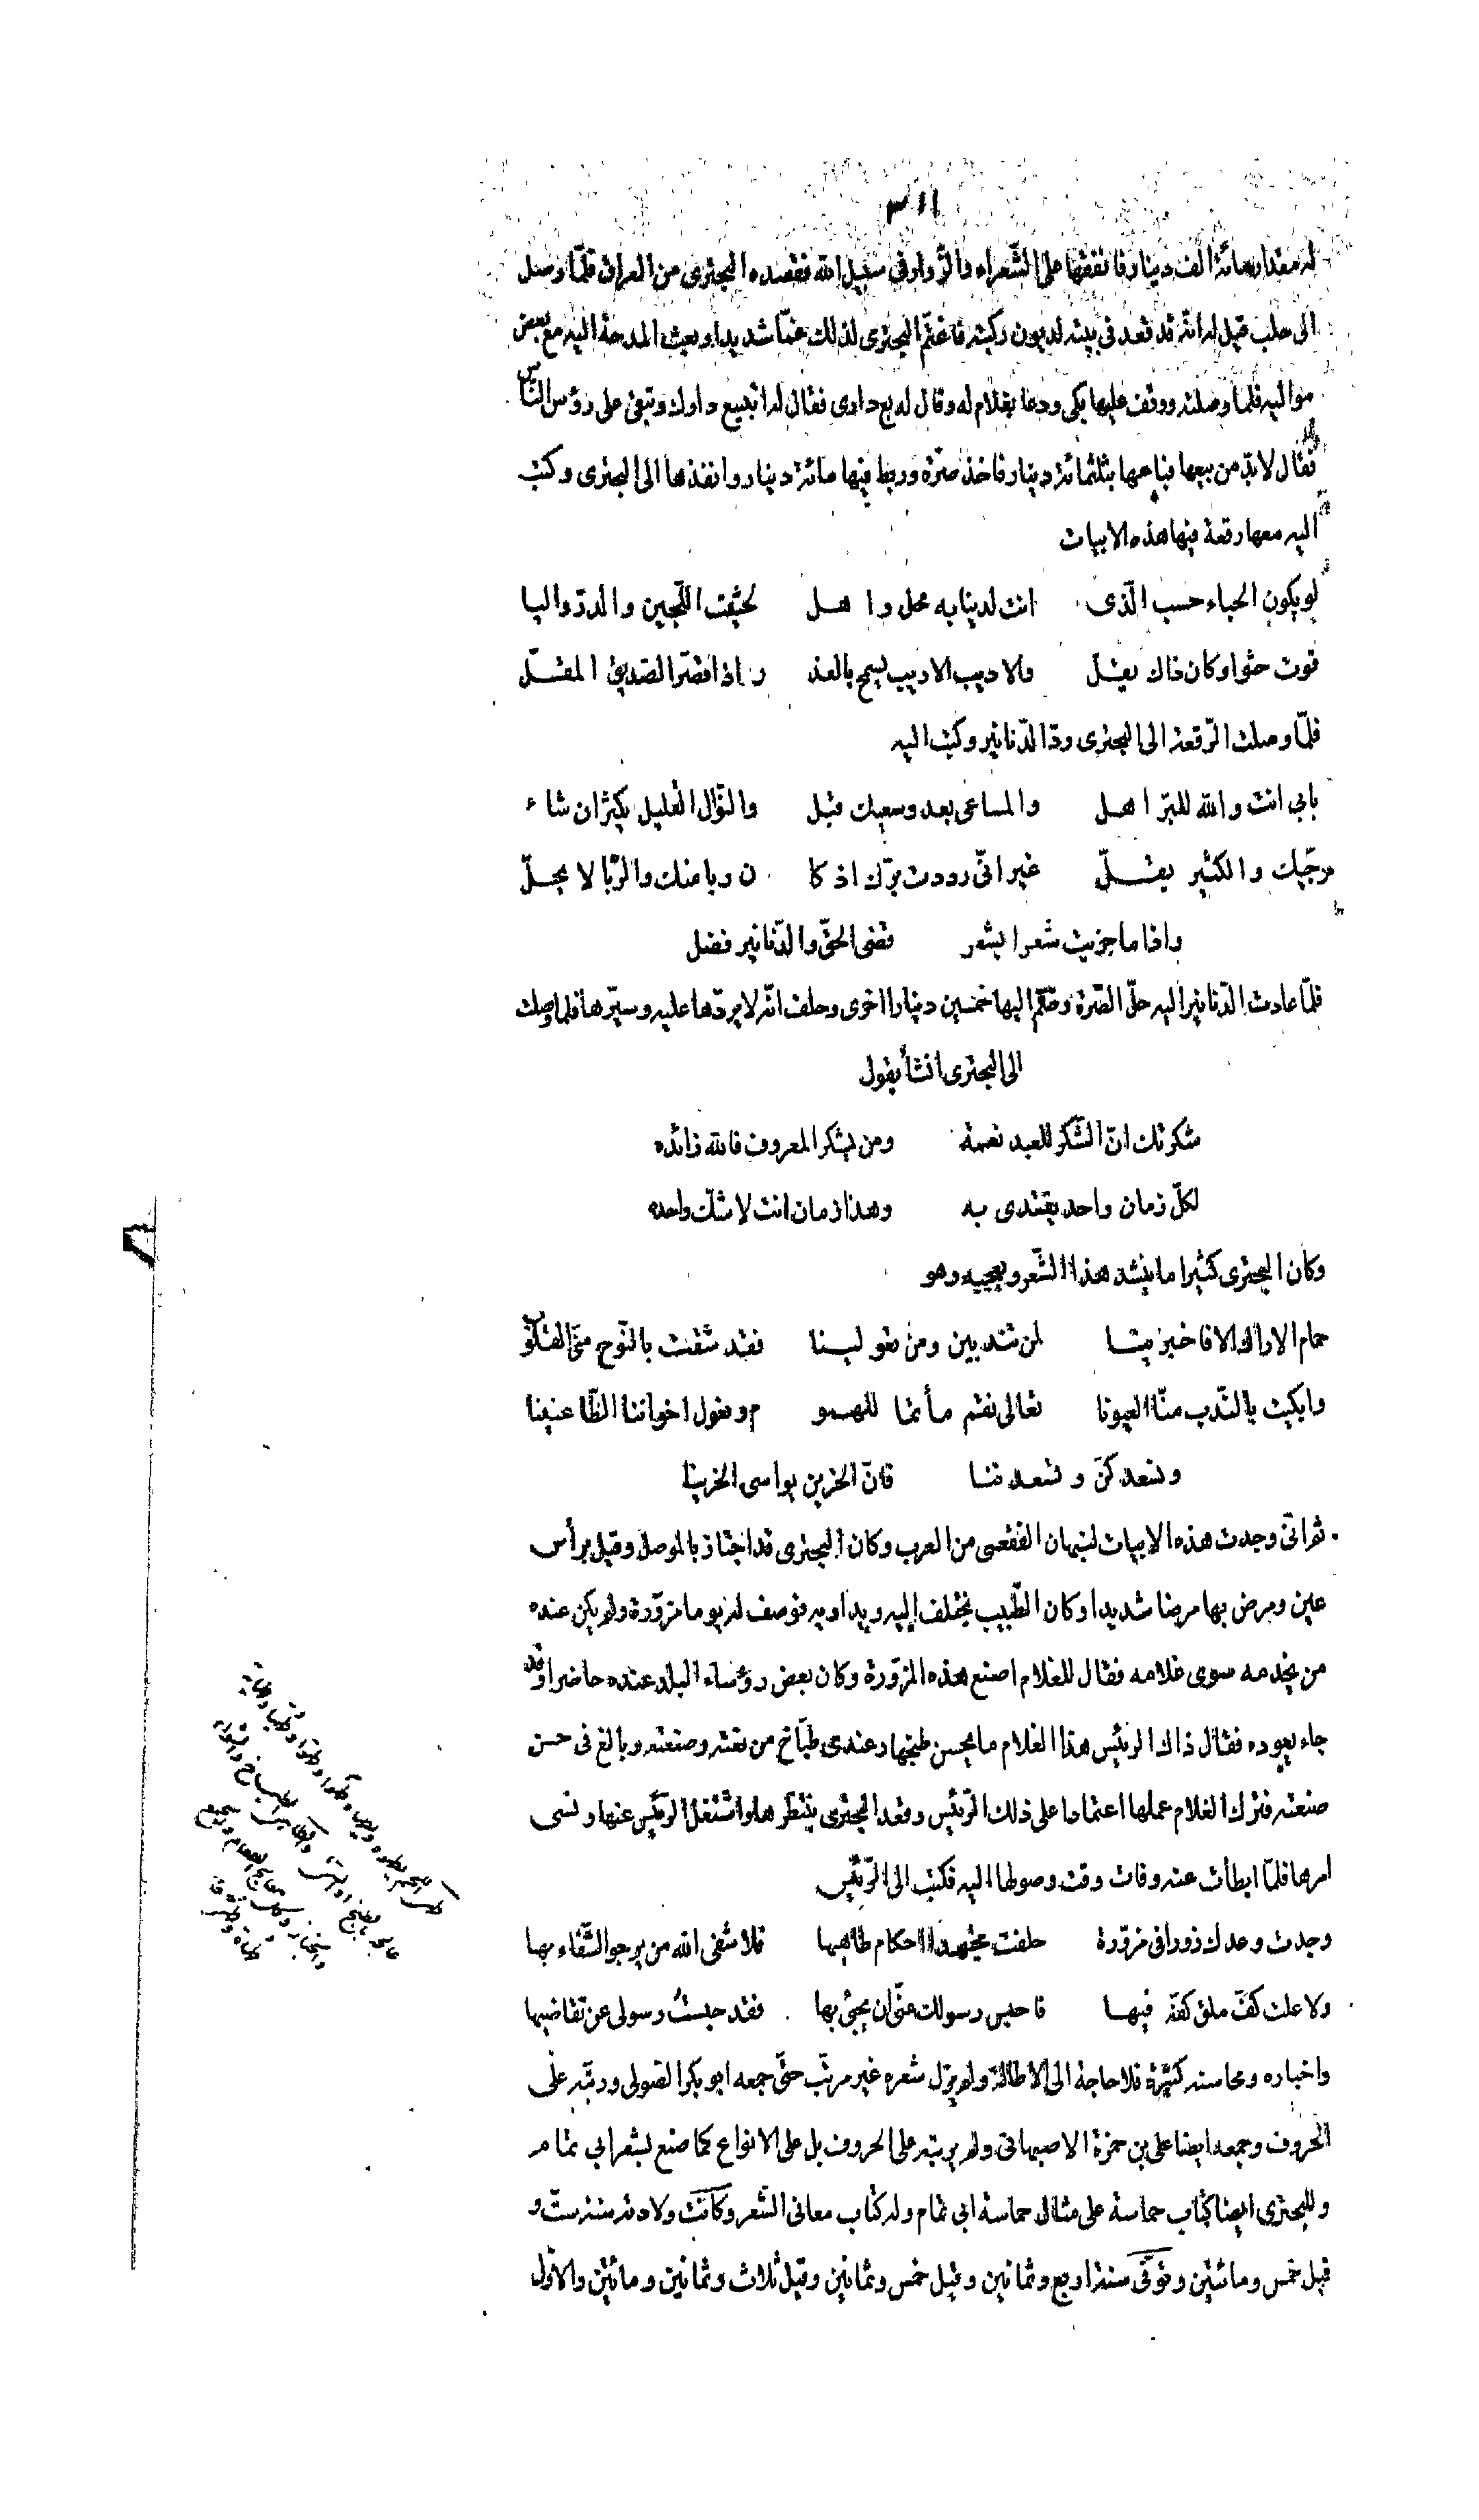 ٣١١
له مقدار مائة الف دينار فانفقها على الشّعراء والزّوار وفى سبيل الله فقصده البحترى من العراق فلمّا وصل
الى حلب قيل له انّه قد قعد فى بيته لديون ركبته فاغتمّ البحترى لذلك غمّا شديدا وبعث المدحة اليه مع بعض
مواليه فلما وصلته ووقف عليها بكى ودعا بغلام له وقال له بع دارى فقال له اتبيع دارك وتبقى على رؤس النّاس
فقال لا بدّ من بيعها فباعها بثلثمائة دينار فاخذ صرّة وربط فيها مائة دينار وانفذها الى البحترى وكتب
اليه معها رقعة فيها هذه الابيات
لو يكون الحباء حسب الّذى انت لدينا به محل واهل لحثيت اللّجين والدرّ واليا
قوت حثوا وكان ذاك يقلّ والاديب الاريب يسمح بالعذ ر اذا قصّر الصّديق المقلّ
فلمّا وصلت الرّقعة الى البحترى ردّ الدّنانير وكتب اليه
بابى انت والله للبرّ اهل والمساعى بعد وسعيك قبل والنّوال القليل يكثر ان شاء
مرجّيك والكثير يقلّ غير انّى رددت برّك اذ كا ن ربا منك والرّبا لا يحلّ
واذا ما جزيت شعرا بشعر قضى الحقّ والدّنانير فضل
فلمّا عادت الدّنانير اليه حلّ الصّرة وضمّ اليها خمسين دينارا اخرى وحلف انّه لا يردّها عليه وسيّرها فلما وصلت
الى البحترى انشأ يقول
شكرتك انّ الشّكر للعبد نعمة ومن يشكر المعروف فالله زائده
لكلّ زمان واحد يقتدى به وهذا زمان انت لا شكّ واحده
وكان البحترى كثيرا ما ينشد هذا الشّعر ويعجبه وهو
حمام الاراك الا فاخبرينا لمن تندبين ومن تعولينا فقد شقت بالنّوح منّا القلوب
وابكيت بالنّدب منّا العيونا تعالى نقم مأتما للهمو م ونعول اخواننا الظّاعنينا
ونسعدكنّ وتسعدننا فانّ الحزين يواسى الحزينا
ثم انّى وجدت هذه الابيات لنبهان الفقعسى من العرب وكان البحترى قد اجتاز بالموصل وقيل برأس
عين ومرض بها مرضا شديدا وكان الطّبيب يختلف اليه ويداويه فوصف له يوما مزوّرة ولم يكن عنده
من يخدمه سوى غلامه فقال للغلام اصنع هذه المزوّرة وكان بعض رؤساء البلد عنده حاضرا وقد
جاء يعوده فقال ذاك الرئيس هذا الغلام ما يحسن طبخها وعندى طبّاخ من نعته وصنعته وبالغ فى حسن
صنعته فترك الغلام عملها اعتمادا على ذلك الرّئيس وقعد البحترى ينتظرها واشتغل الرّئيس عنها ونسى
امرها فلمّا ابطأت عنه وفات وقت وصولها اليه فكتب الى الرّئيس
وجدت وعدك زورا فى مزوّرة حلفت مجتهدا احكام طاهيها فلا شفى الله من يرجو الشّفاء بها
ولا علت كفّ ملق كفّه فيها فاحبس رسولك عنّى ان يجئ بها فقد حبستُ رسولى عن تقاضيها
واخباره ومحاسنه كثيرة فلا حاجة الى الاطالة ولم يزل شعره غير مرتّب حتّى جمعه ابو بكر الصّولى ورتّبه على
الحروف وجمعه ايضا على بن حمزة الاصبهانى ولم يرتبه على الحروف بل على الانواع كما صنع بشعر ابى تمام
وللبحترى ايضا كتاب حماسة على مثال حماسة ابى تمام وله كتاب معانى الشّعر وكانت ولادته سنة ستّ و
قيل خمس ومائتين وتوفّى سنة اربع وثمانين وقيل خمس وثمانين وقيل ثلاث وثمانين ومائتين والاوّل